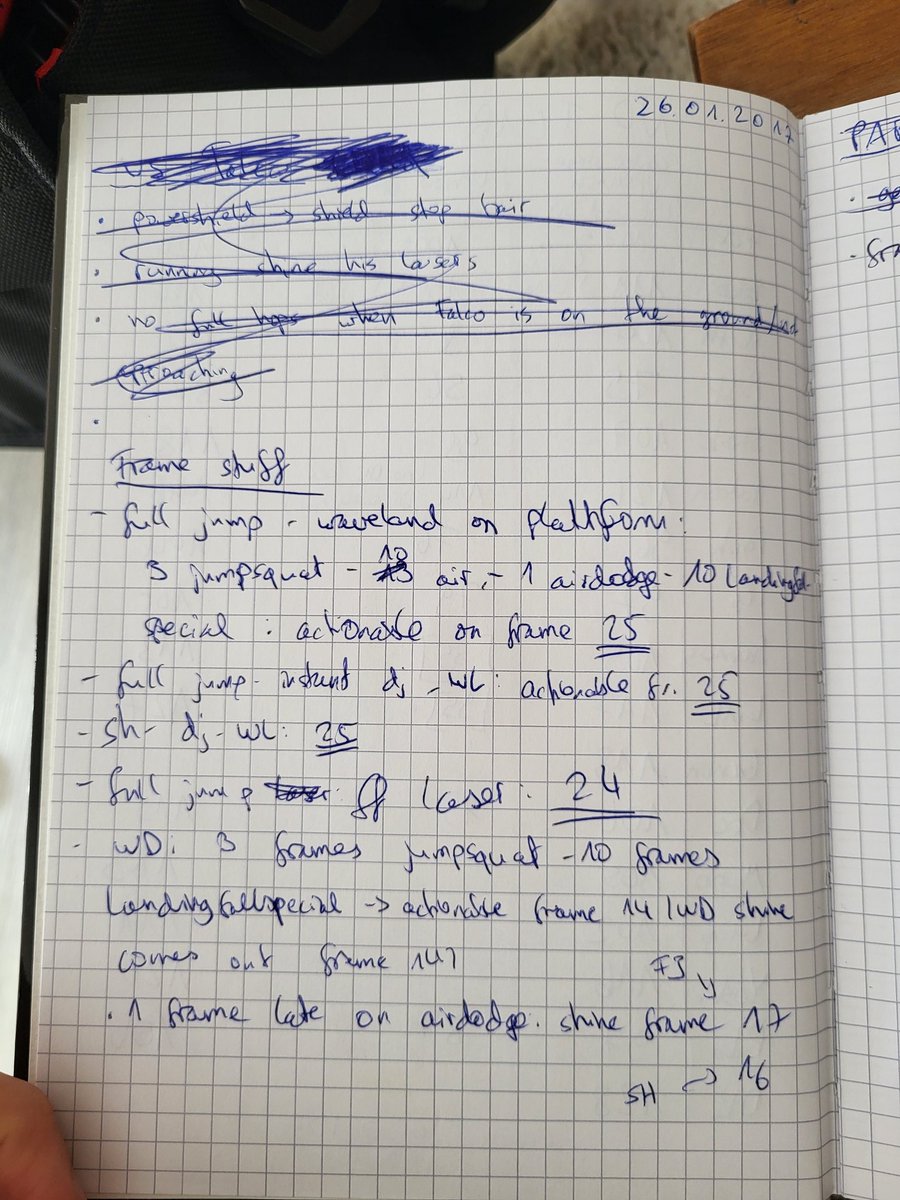 26.01.2017
vs Falco
• powershield → shield stop bair
• running shine his lasers
• no full hops when Falco is on the ground/not
approaching
•
Frame stuff
- full jump - waveland on plathform:
3 jumpsquat - 10 air, - 1 airdodge - 10 landingfall
special : actionable on frame 25
- full jump - instant dj - WL: actionable fr. 25
- sh - dj - WL: 25
- full jump laser: ff laser: 24
- WD: 3 frames jumpsquat - 10 frames
Landingfallspecial -> actionable frame 14 (WD shine
comes out frame 14)
• 1 frame late on airdodge. shine frame 17
FJ
SH → 16
PA
• fra